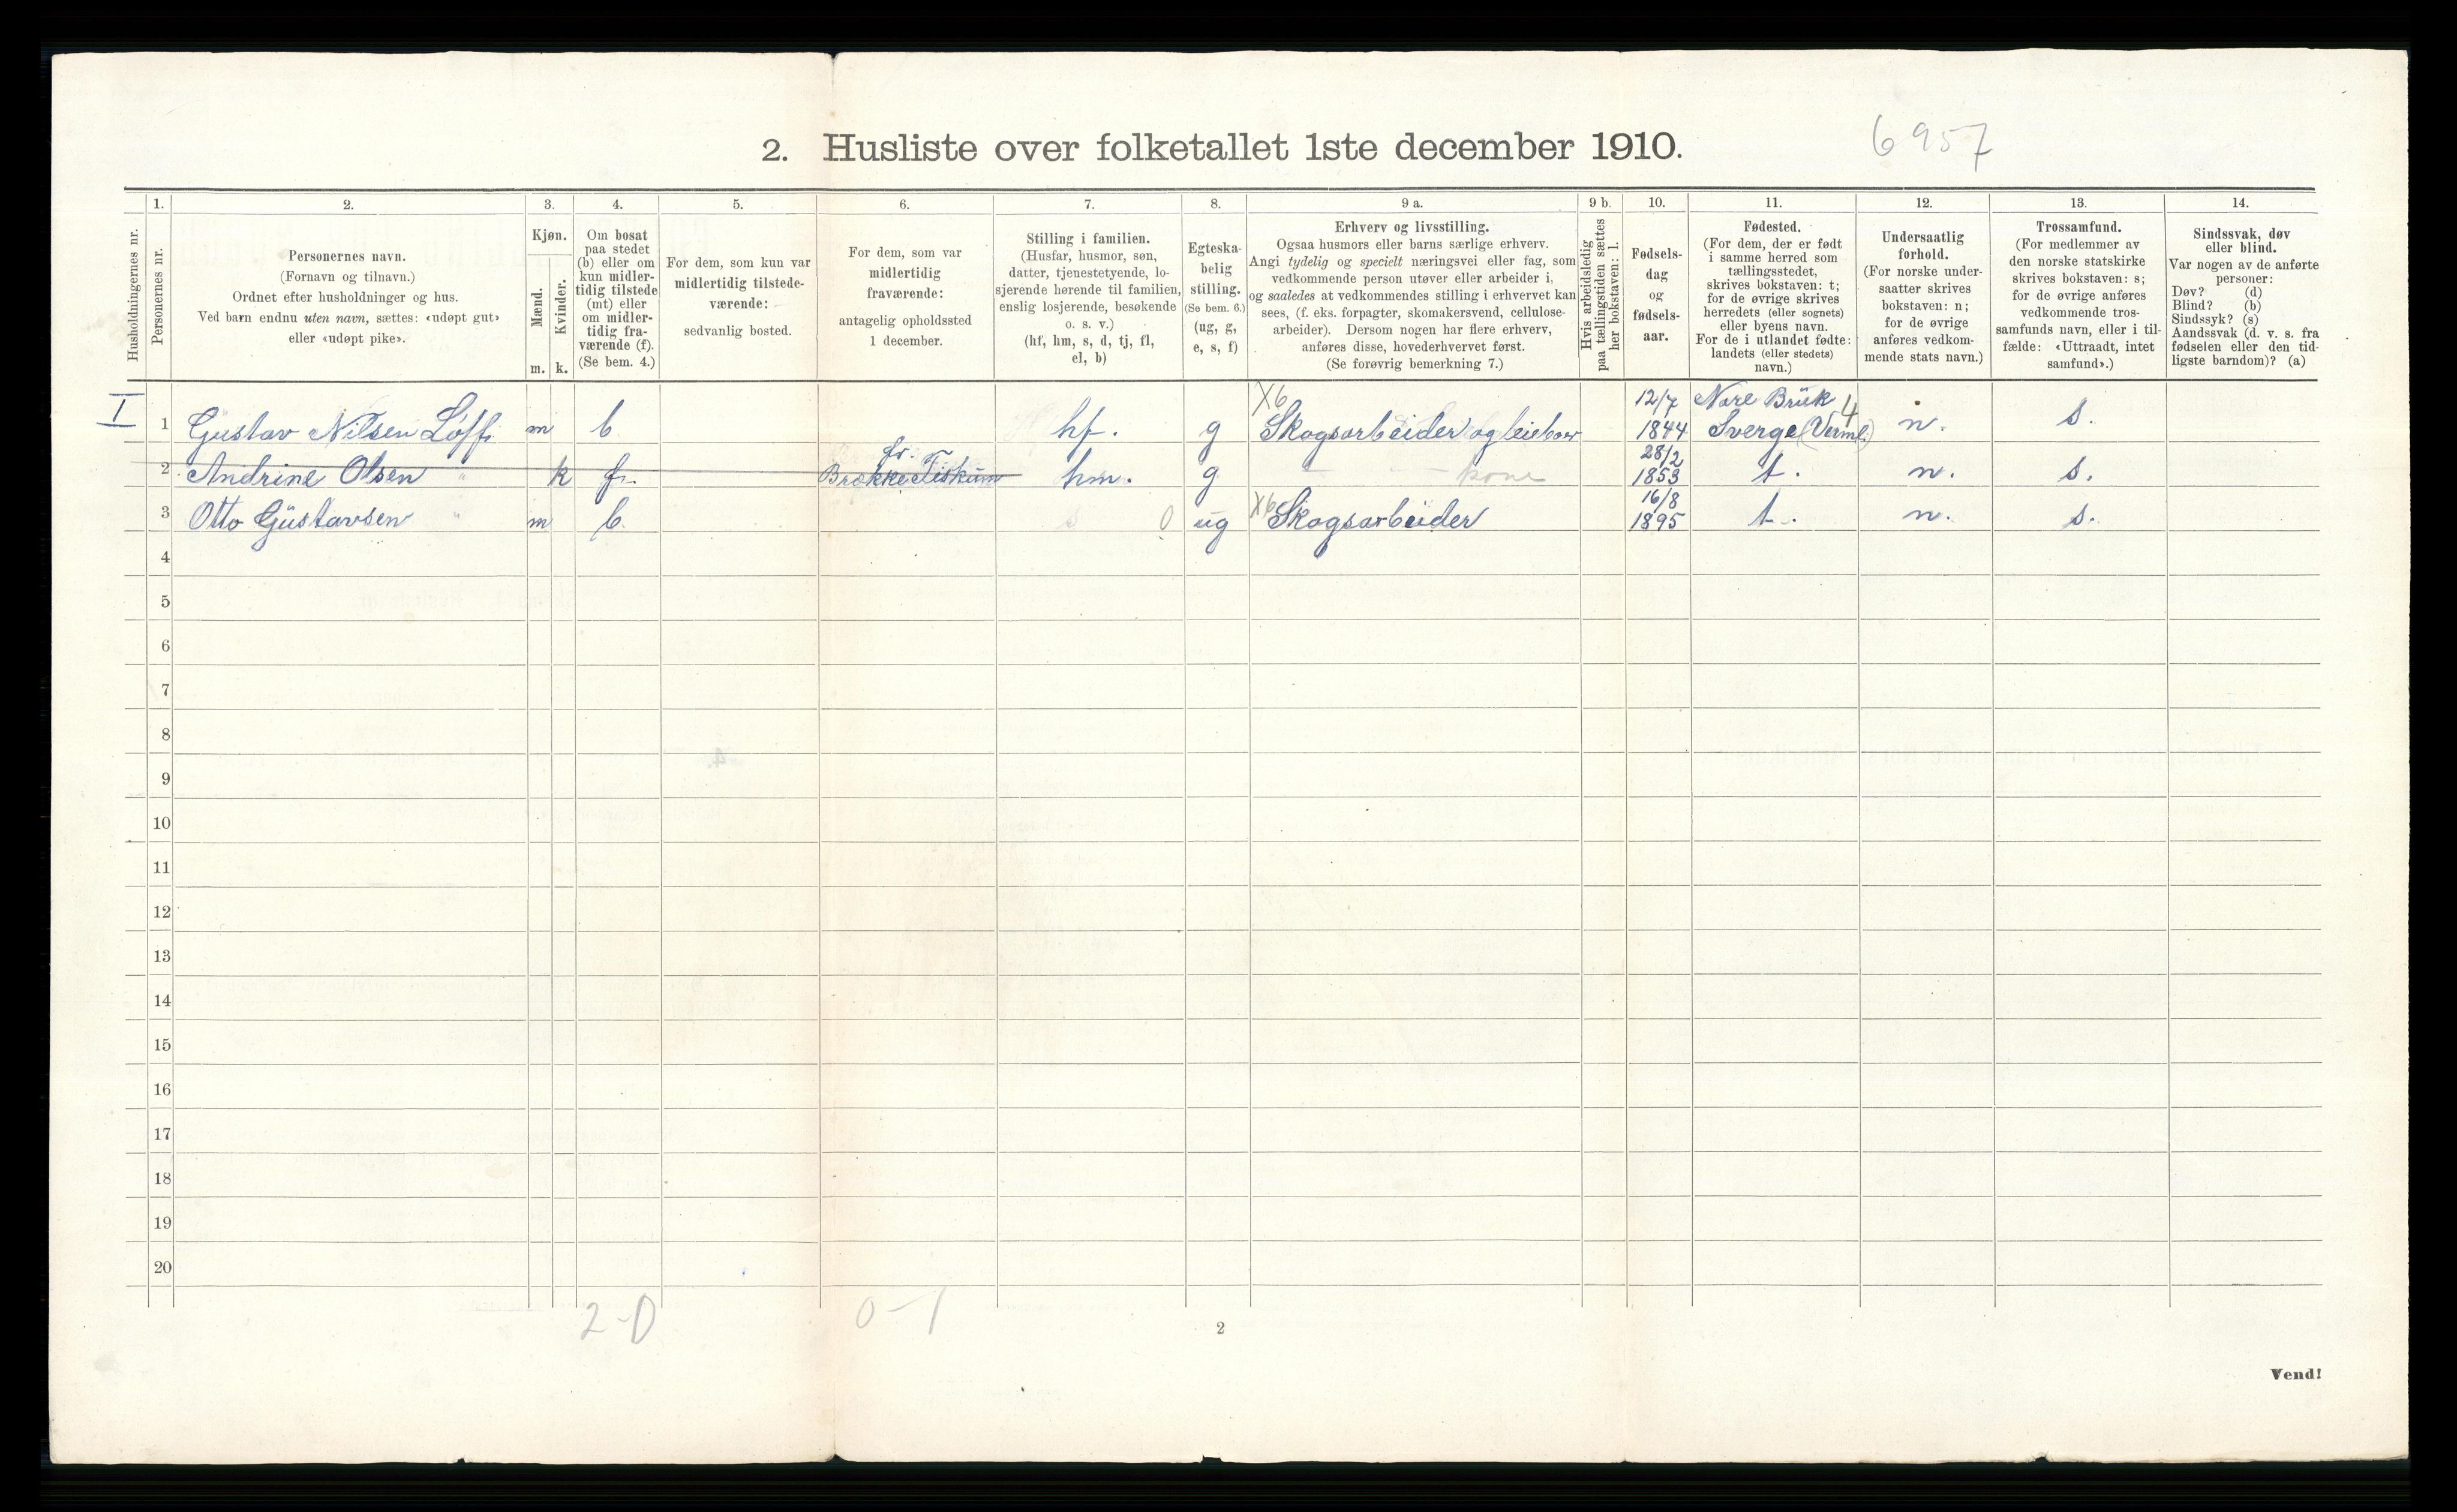 2. Husliste over folketallet 1ste december 1910.
6957
Husholdningernes nr.
1.
Personernes nr.
2.
Personernes navn.
(Fornavn og tilnavn.)
Ordnet efter husholdninger og hus.
Ved barn endnu uten navn, sættes: «udøpt gut»
eller «udøpt pike».
3.
Kjøn.
Mænd.
Kvinder.
m. k.
4.
Om bosat
paa stedet
(b) eller om
kun midler-
tidig tilstede
(mt) eller
om midler-
tidig fra-
værende (f).
(Se bem. 4.)
5.
For dem, som kun var
midlertidig tilstede-
værende:
sedvanlig bosted.
6.
For dem, som var
midlertidig
fraværende:
antagelig opholdssted
1 december.
7.
Stilling i familien.
(Husfar, husmor, søn,
datter, tjenestetyende, lo-
sjerende hørende til familien,
enslig losjerende, besøkende
o. s. v.)
(hf, hm, s, d, tj, fl,
el, b)
8.
Egteska-
belig
stilling.
(Se bem. 6.)
(ug, g,
e, s, f)
9 a.
Erhverv og livsstilling.
Ogsaa husmors eller barns særlige erhverv.
Angi tydelig og specielt næringsvei eller fag, som
vedkommende person utøver eller arbeider i,
og saaledes at vedkommendes stilling i erhvervet kan
sees, (f. eks. forpagter, skomakersvend, cellulose-
arbeider). Dersom nogen har flere erhverv,
anføres disse, hovederhvervet først.
(Se forøvrig bemerkning 7.)
9 b.
Hvis arbeidsledig
paa tællingstiden sættes
her bokstaven: l.
10.
Fødsels-
dag
og
fødsels-
aar.
11.
Fødested.
(For dem, der er født
i samme herred som
tællingsstedet,
skrives bokstaven: t;
for de øvrige skrives
herredets (eller sognets)
eller byens navn.
For de i utlandet fødte:
landets (eller stedets)
navn.)
12.
Undersaatlig
forhold.
(For norske under-
saatter skrives
bokstaven: n;
for de øvrige
anføres vedkom-
mende stats navn.)
13.
Trossamfund.
(For medlemmer av
den norske statskirke
skrives bokstaven: s;
for de øvrige anføres
vedkommende tros-
samfunds navn, eller i til-
fælde: «Uttraadt, intet
samfund».)
14.
Sindssvak, døv
eller blind.
Var nogen av de anførte
personer:
Døv? (d)
Blind? (b)
Sindssyk? (s)
Aandssvak (d. v. s. fra
fødselen eller den tid-
ligste barndom)? (a)
X6 12/7 Nore Brük 4
I 1 Gustav Nilsen Löffi m b hf. g Skogsarbeider og leieboer 1844 Sverge (Verml.) n. s.
fr. 28/2
2 Andrine Olsen " k f. Brække Fiskum hm. g - - kone 1853 t. n. s.
16/8
3 Otto Gustavsen " m b. s 0 ug X6 Skogsarbeider 1895 t. n. s.
4
5
6
7
8
9
10
11
12
13
14
15
16
17
18
19
20
2-0 0-1
2
Vend!